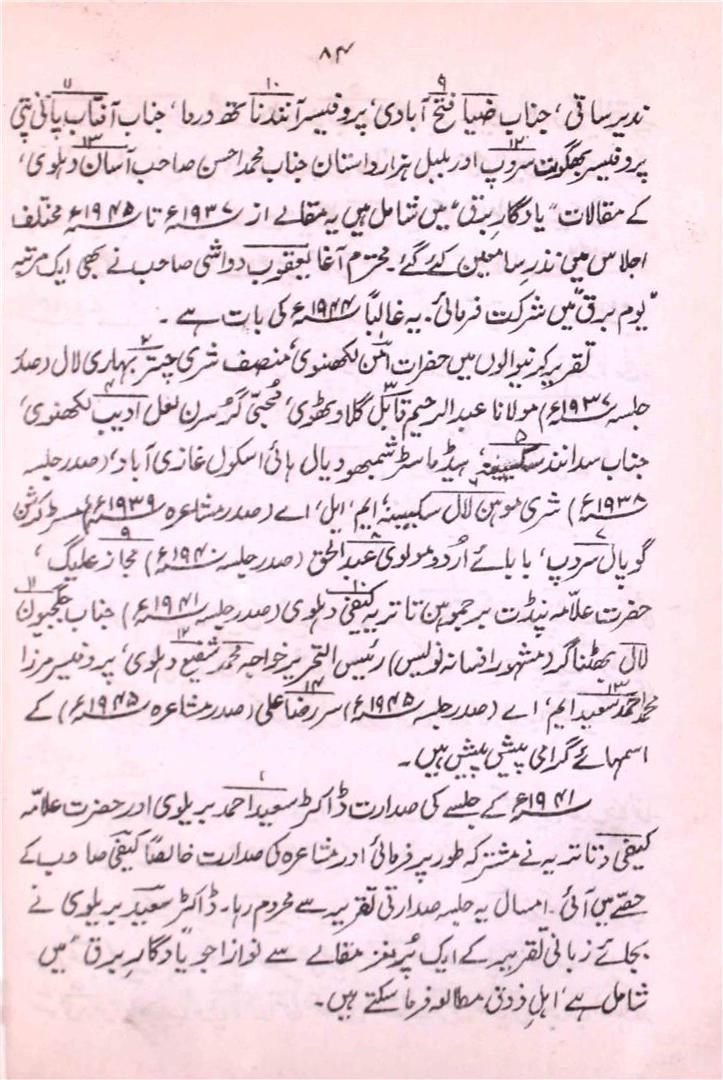 ۸۴
۷ ۱۰ ۹
ندیر ساقی، جناب ضیا فتح آبادی، پروفیسر آنند ناتھ درما، جناب آفتاب پانی پتی
۱۲ ۱۳
پروفیسر بھگوت سروپ اور بلبل ہزار داستان جناب محمد احسن صاحب آسان دہلوی،
کے مقالات "یادگارِ برق" میں شامل ہیں یہ مقالے از ۱۹۳۷ء تا ۱۹۴۵ء مختلف
اجلاس میں نذرِ سامعین کئے گئے۔ محترم آغا یعقوب دواشی صاحب نے بھی ایک مرتبہ
"یوم برق" میں شرکت فرمائی۔ یہ غالباً ۱۹۴۴ء کی بات ہے۔
۱ ۲
تقریر کرنیوالوں میں حضرات امن لکھنوی، منصف شری چیتر بہاری لال (صدر
۳ ۴
جلسہ ۱۹۳۷ء) مولانا عبدالرحیم قابل گلاوٹھوی، مُحبّی گُر سرن لعل ادیب لکھنوی،
۵
جناب سدانند سکسینہ، ہیڈ ماسٹر شمبھو دیال ہائی اسکول غازی آباد، (صدر جلسہ
۶
۱۹۳۸ء) شری موہن لال سکسینہ، ایم، ایل، اے (صدر مشاعرہ ۱۹۳۹ء) مسٹر کرشن
۷ ۸ ۹
گوپال سروپ، بابائے اُردو مولوی عبدالحق (صدر جلسہ ۱۹۴۰ء) مجاز علیگ،
۱۰ ۱۱
حضرت علّامہ پنڈت برجموہن تاتریہ کیفی دہلوی (صدر جلسہ ۱۹۴۱ء) جناب جگجیون
۱۲
لال بھٹناگر (مشہور افسانہ نویس) رئیس التحریر خواجہ محمد شفیع دہلوی، پروفیسر مرزا
۱۳ ۱۴
محمد احمد سعید ایم، اے (صدر جلسہ ۱۹۴۵ء) سر رضا علی (صدر مشاعرہ ۱۹۴۵ء) کے
اسمہائے گرامی پیش پیش ہیں۔
۱
۱۹۴۱ء کے جلسے کی صدارت ڈاکٹر سعید احمد بریلوی اور حضرت علّامہ
کیفی دتاتریہ نے مشترکہ طور پر فرمائی اور مشاعرہ کی صدارت خالصتاً کیفی صاحب کے
حصے میں آئی۔ امسال یہ جلسہ صدارتی تقریر سے محروم رہا۔ ڈاکٹر سعید بریلوی نے
بجائے زبانی تقریر کے ایک پُر مغز مقالے سے نوازا جو "یادگارِ برق" میں
شامل ہے، اہلِ ذوق مطالعہ فرما سکتے ہیں۔